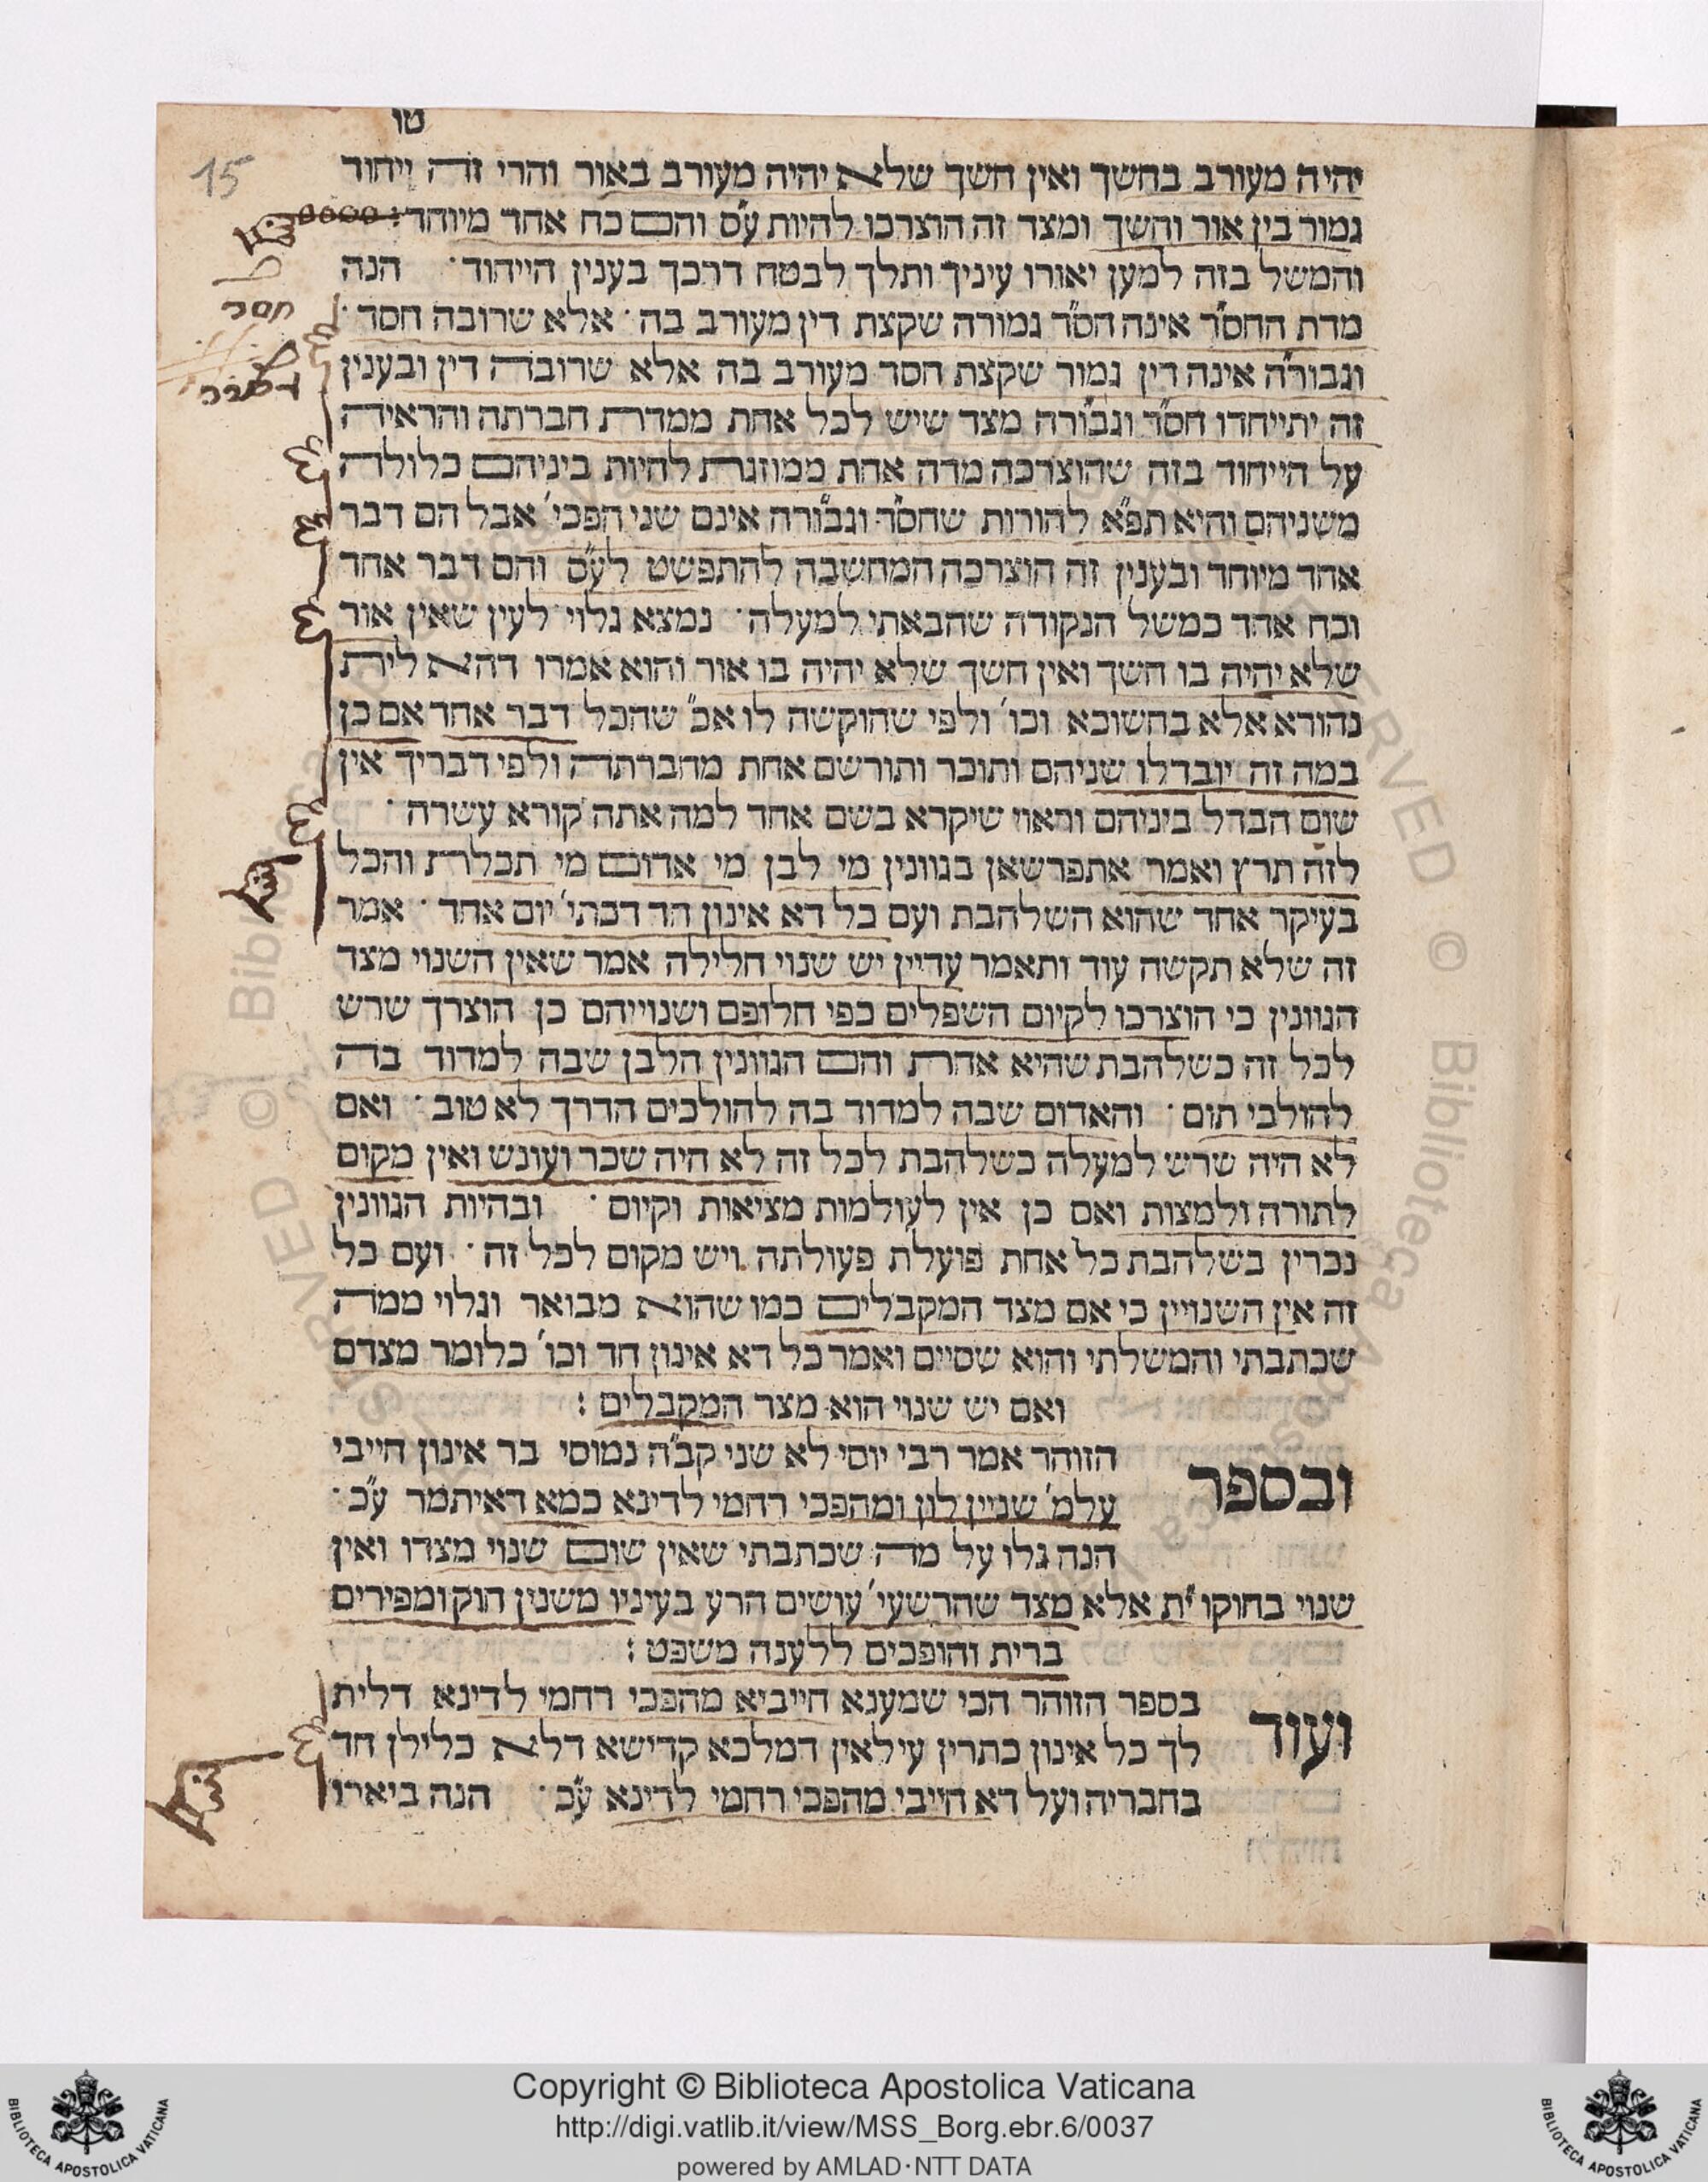 טו
15
יהיה מעורב בחשך ואין חשך שלא יהיה מעורב באור והרי זה ייחוד
גמור בין אור וחשך ומצד זה הוצרכו להיות ע״ס והם כח אחד מיוחד:
והמשל בזה למען יאורו עיניך ותלך לבטח דרכך בענין הייחוד · הנה
חסד
מדת החס״ד אינה חס״ד גמורה שקצת דין מעורב בה · אלא שרובה חסד ·
וגבור״ה אינה דין גמור שקצת חסד מעורב בה אלא שרובה דין ובענין
זה יתייחדו חס״ד וגבו״רה מצד שיש לכל אחת ממדת חברתה והראיה
על הייחוד בזה שהוצרכה מדה אחת ממוזגת להיות ביניהם כלולה
משניהם והיא תפ״א להורות שחס״ד וגבו״רה אינם שני הפכי׳ אבל הם דבר
אחד מיוחד ובענין זה הוצרכה המחשבה להתפשט לע״ס והם דבר אחד
וכח אחד כמשל הנקודה שהבאתי למעלה · נמצא גלוי לעין שאין אור
שלא יהיה בו חשך ואין חשך שלא יהיה בו אור והוא אמרו דהא לית
נהורא אלא בחשוכא וכו׳ ולפי שהוקשה לו אכ״ שהכל דבר אחר אם כן
במה זה יובדלו שניהם ותוכר ותורשם אחת מחברתה ולפי דבריך אין
שום הבדל ביניהם וראוי שיקרא בשם אחד למה אתה קורא עשרה ·
לזה תרץ ואמר אתפרשאן בגוונין מי לבן מי אדום מי תכלת והכל
בעיקר אחד שהוא השלהבת ועם כל דא אינון חד דכתי׳ יום אחד · אמר
זה שלא תקשה עוד ותאמר עדיין יש שנוי חלילה אמר שאין השנוי מצד
הגוונין כי הוצרכו לקיום השפלים כפי חלופם ושנוייהם כן הוצרך שרש
לכל זה כשלהבת שהיא אחת והם הגוונין הלבן שבה למדוד בה
להולכי תום · והאדום שבה למדוד בה להולכים הדרך לא טוב · ואם
לא היה שרש למעלה כשלהבת לכל זה לא היה שכר ועונש ואין מקום
לתורה ולמצות ואם כן אין לעולמות מציאות וקיום · ובהיות הגוונין
נכרין בשלהבת כל אחת פועלת פעולתה ויש מקום לכל זה · ועם כל
זה אין השנויין כי אם מצד המקבלים כמו שהוא מבואר וגלוי ממה
שכתבתי והמשלתי והוא שסיים ואמר כל דא אינון חד וכו׳ כלומר מצדם
ואם יש שנוי הוא מצד המקבלים :
ובספר הזוהר אמר רבי יוסי לא שני קב״ה נמוסי בר אינון חייבי
עלמ׳ שניין לון ומהפכי רחמי לדינא כמא דאיתמר ע״כ ·
הנה גלו על מה שכתבתי שאין שום שנוי מצדו ואין
שנוי בחוקו ית׳ אלא מצד שהרשעי׳ עושים הרע בעיניו משנין חוק ומפירים
ברית והופכים ללענה משפט :
ועוד בספר הזוהר הכי שמענא חייביא מהפכי רחמי לדינא דלית
לך כל אינון כתרין עילאין דמלכא קדישא דלא כלילן חד
בחבריה ועל דא חייבי מהפכי רחמי לדינא ע״כ · הנה ביארו
Copyright © Biblioteca Apostolica Vaticana
http://digi.vatlib.it/view/MSS_Borg.ebr.6/0037
powered by AMLAD·NTT DATA
BIBLIOTECA APOSTOLICA VATICANA
BIBLIOTECA APOSTOLICA VATICANA